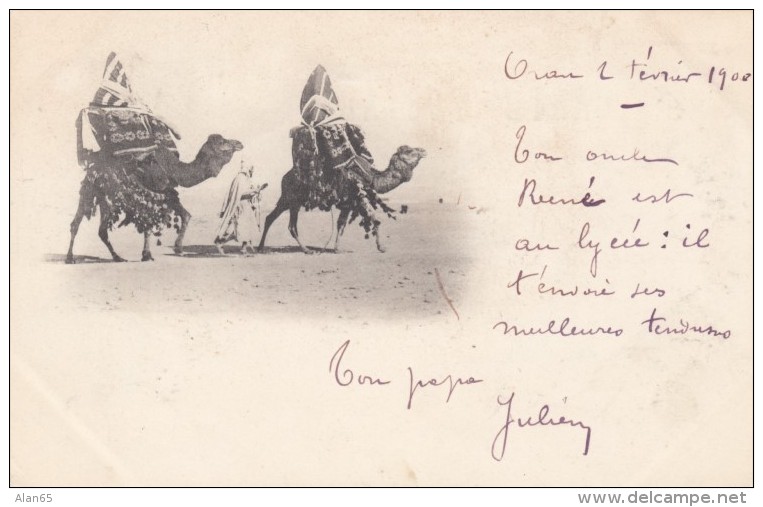 Oran 2 février 1900
Ton oncle
René est
au lycée : il
t'envoie ses
meilleures tendresses
Ton papa
Julien
Alan65
delcampe.net